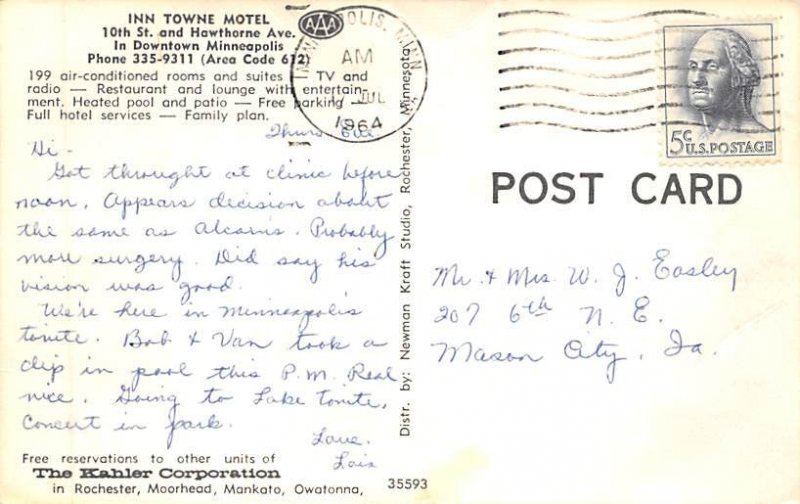 INN TOWNE MOTEL
10th St. and Hawthorne Ave.
In Downtown Minneapolis
Phone 335-9311 (Area Code 612)
199 air-conditioned rooms and suites — TV and
radio — Restaurant and lounge with entertain-
ment. Heated pool and patio — Free parking —
Full hotel services — Family plan.
AAA
MINNEAPOLIS, MINN.
AM
JUL
1964
Thurs. Eve.
Hi -
Got throught at clinic before
noon. Appears decision about
the same as Alcorn's. Probably
more surgery. Did say his
vision was good.
We're here in Minneapolis
tonite. Bob & Van took a
dip in pool this P.M. Real
nice. Going to Lake tonite.
Concert in park.
Love.
Lois
Free reservations to other units of
The Kahler Corporation
in Rochester, Moorhead, Mankato, Owatonna,
35593
Distr. by: Newman Kraft Studio, Rochester, Minnesota
5c U.S. POSTAGE
POST CARD
Mr. & Mrs. W. J. Easley
207 6th N. E.
Mason City, Ia.